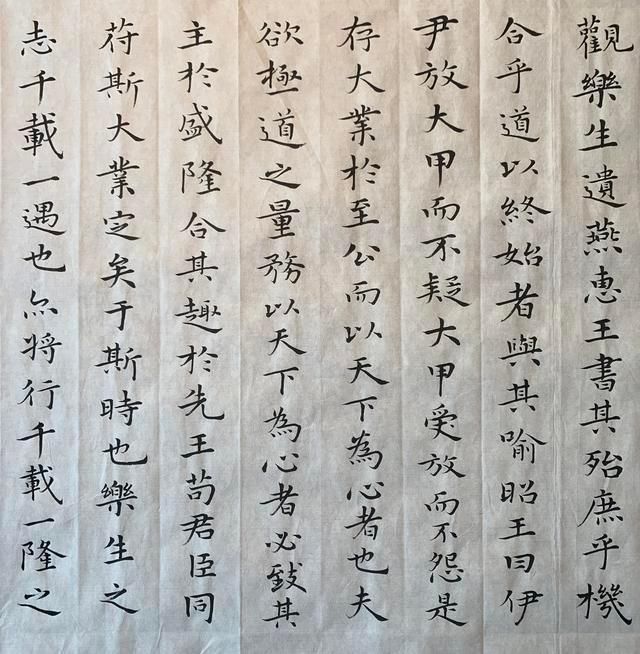 觀樂生遺燕惠王書其殆庶乎機
合乎道以終始者與其喻昭王曰伊
尹放大甲而不疑大甲受放而不怨是
存大業於至公而以天下為心者也夫
欲極道之量務以天下為心者必致其
主於盛隆合其趣於先王苟君臣同
苻斯大業定矣于斯時也樂生之
志千載一遇也亦將行千載一隆之